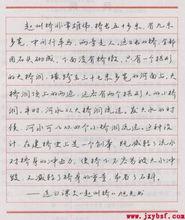 赵州桥非常雄伟。桥长五十多米，有九米
多宽，中间行车马，两旁走人。这么长的桥，全部
用石头砌成，下面没有桥墩，只有一个拱形
的大桥洞，横跨在三十七米多宽的河面上。大
桥洞顶上的两边，还各有两个拱形的小桥
洞。平时，河水从大桥洞流过，发大水的时
候，河水还可以从四个小桥洞流过。这种设
计，在建桥史上是一个创举，既减轻了流水
对桥身的冲击力，使桥不容易被大水冲
毁，又减轻了桥身的重量，节省了石料。
——选自课文《赵州桥》
www.jzybsf.com